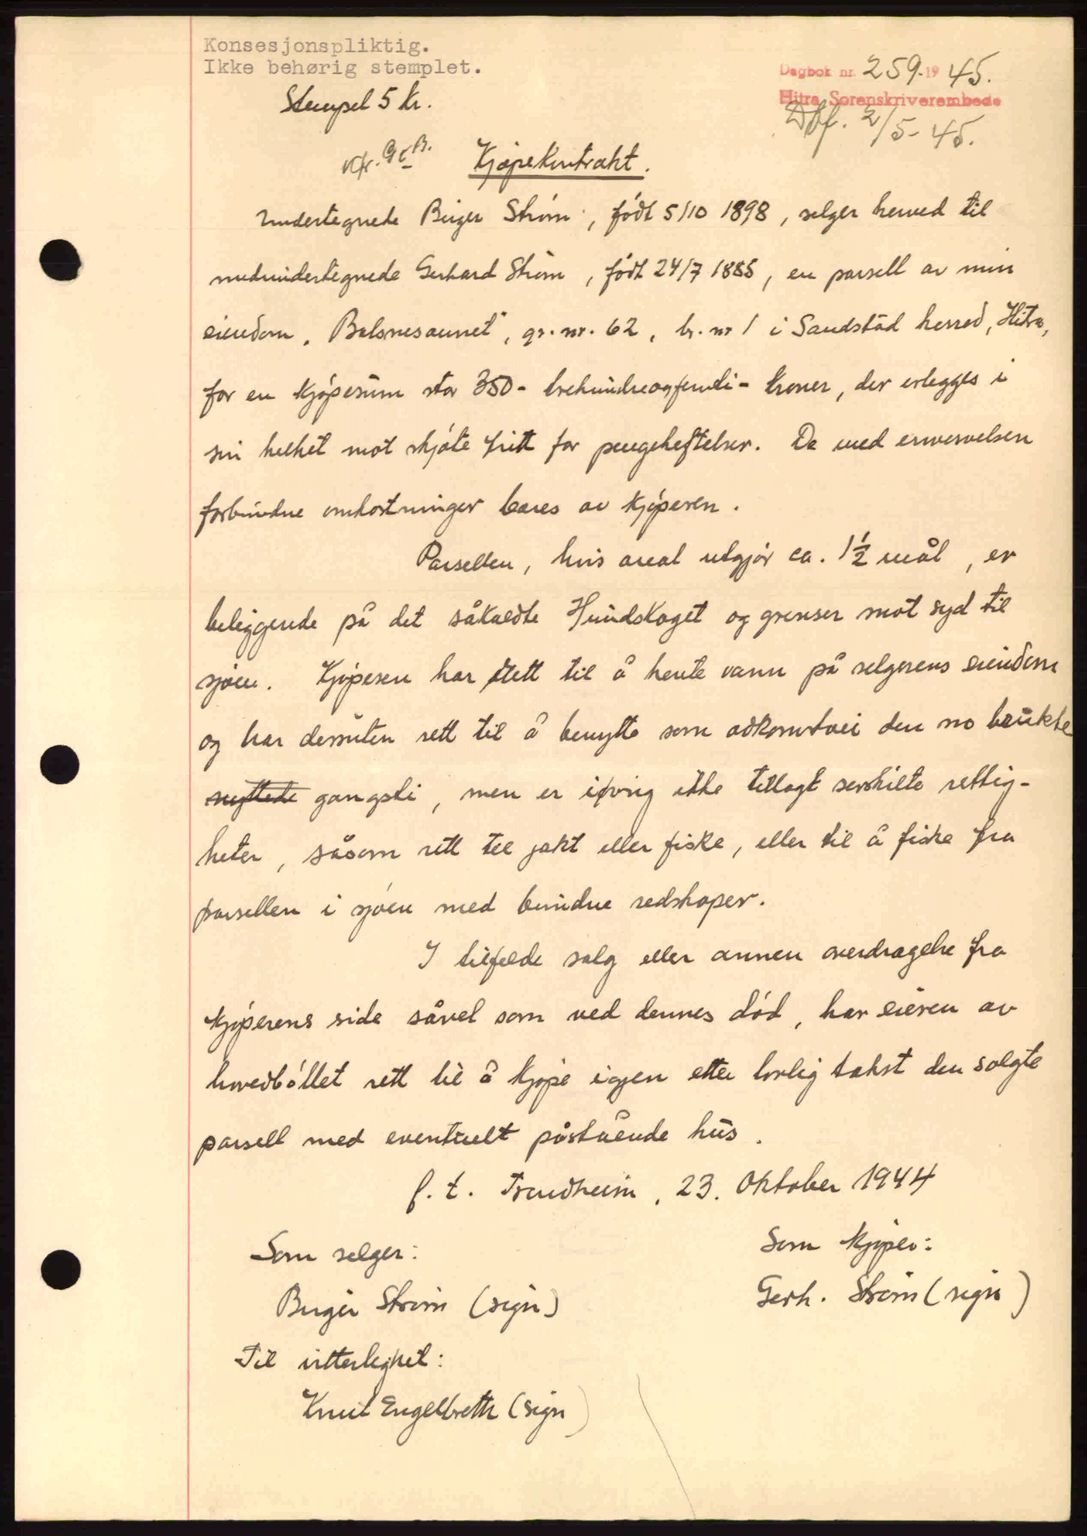 Konsesjonspliktig.
Ikke behørig stemplet.
Stempel 5 kr.
Dagbok nr. 259. 1945.
Hitra Sorenskriverembede
Dbf. 2/5-45.
Kjøpekontrakt.
Undertegnede Birger Strøm, født 5/10 1898, selger herved til
medundertegnede Gerhard Strøm, født 24/7 1885, en parsell av min
eiendom, "Balsnesaunet", gr. nr. 62, br. nr 1 i Sandstad herred, Hitra,
for en kjøpesum stor 350- trehundreogfemti- kroner, der erlegges i
sin helhet mot skjøte fritt for pengeheftelser. De med ervervelsen
forbundne omkostninger bæres av kjøperen.
Parsellen, hvis areal utgjør ca. 1½ mål, er
beliggende på det såkaldte Hundskaget og grenser mot syd til
sjøen. Kjøperen har rett til å hente vann på selgerens eiendom
og har dessuten rett til å benytte som adkomstvei den no brukte
nyttede gangsti, men er iøvrig ikke tillagt serskilte rettig-
heter, såsom rett til jakt eller fiske, eller til å fiske fra
parsellen i sjøen med bundne redskaper.
I tilfelde salg eller annen overdragelse fra
kjøperens side såvel som ved dennes død, har eieren av
hovedbøllet rett til å kjøpe igjen etter lovlig takst den solgte
parsell med eventuelt påstående hus.
f. t. Trondheim, 23. Oktober 1944
Som selger:
Som kjøper:
Birger Strøm (sign)
Gerh. Strøm (sign)
Til vitterlighet:
Knut Engelbreth (sign)